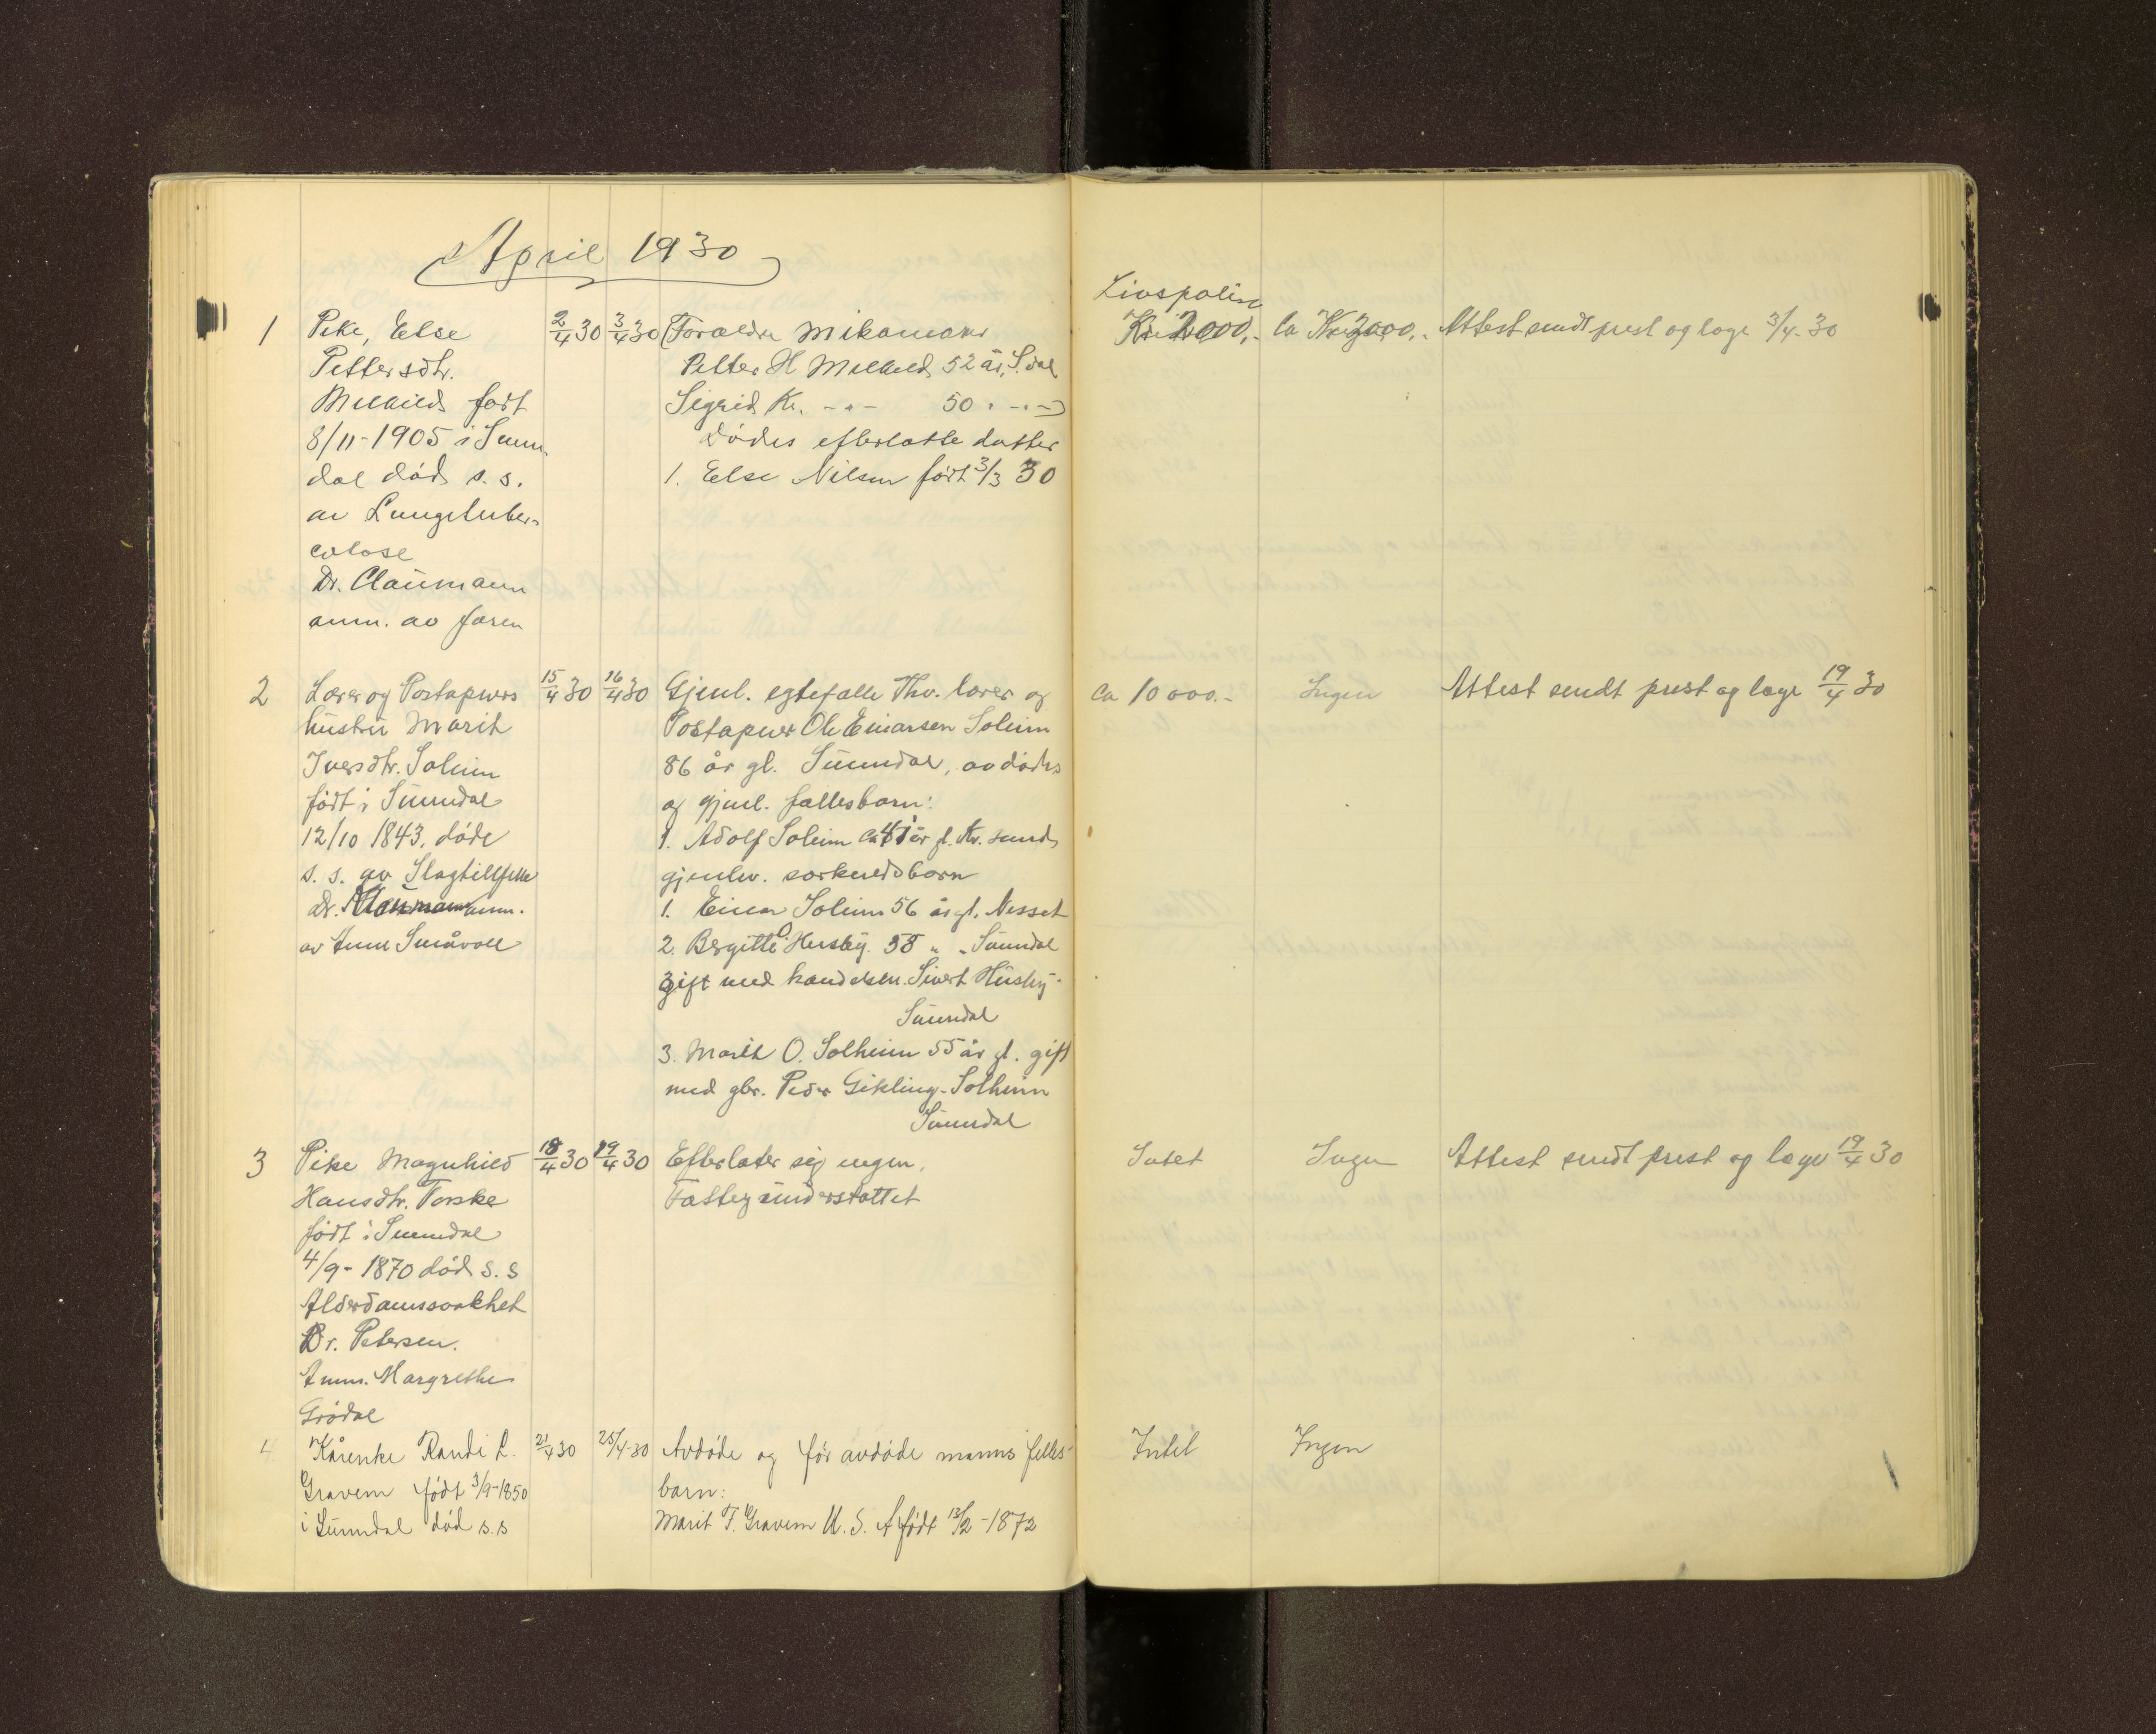 April 1930
1
Pike, Else
Pettersdtr.
født
8/11-1905 i Sunn-
dal død s. s.
av Lungetuber-
colose
Dr. Claumann
anm. av faren
2/4 30
3/4 30
(Forældre
Petter H 52 år, S.dal
Sigrid Kr. -"- 50 " -"-)
dødes efterlatte datter
1. Else Nilsen født 3/3 30
Livspolise
Kr 2000,-
Ca Kr 3000,-
Attest sendt prest og læge 3/4-30
2
Lærer og Postapners
hustru Marit
Iversdtr. Soleim
født i Sunndal
12/10 1843, døde
s. s. av Slagtillfelle
Dr. anm.
av Småvoll
15/4 30
16/4 30
Gjenl. egtefælle Fhv. lærer og
Postapner Ole Einarsen Soleim
86 år gl. Sunndal, av dødes
og gjenl. fællesbarn:
1. Adolf Soleim ca 41 år gl. Kr. sund
gjenlev. særkuldsbarn
1. Einar Soleim 56 år gl. Nesset
2. Bergitte O. Husby. 58 " " Sunndal
gift med handelsm. Sivert Husby
Sunndal
3. Marit O. Solheim 55 år gl. gift
med gbr. Peder Gikling-Solheim
Sunndal
Ca 10 000.-
Ingen
Attest sendt prest og læge 19/4 30
3
Pike Magnhild
Hansdtr. Torske
født i Sunndal
4/9- 1870 død s. s
Alderdomssvakhet
Dr. Petersen.
Anm. Margrethe
Grødal
18/4 30
19/4 30
Efterlater sig ingen.
Fattigunderstøttet
Intet
Ingen
Attest sendt prest og læge 19/4 30
4
Kårenke Randi L.
Gravem født 3/9-1850
i Sunndal død s.s
21/4 30
25/4-30
Avdøde og før avdøde manns felles-
barn:
Marit T. Gravem U. S. A født 13/2-1872
Intet
Ingen